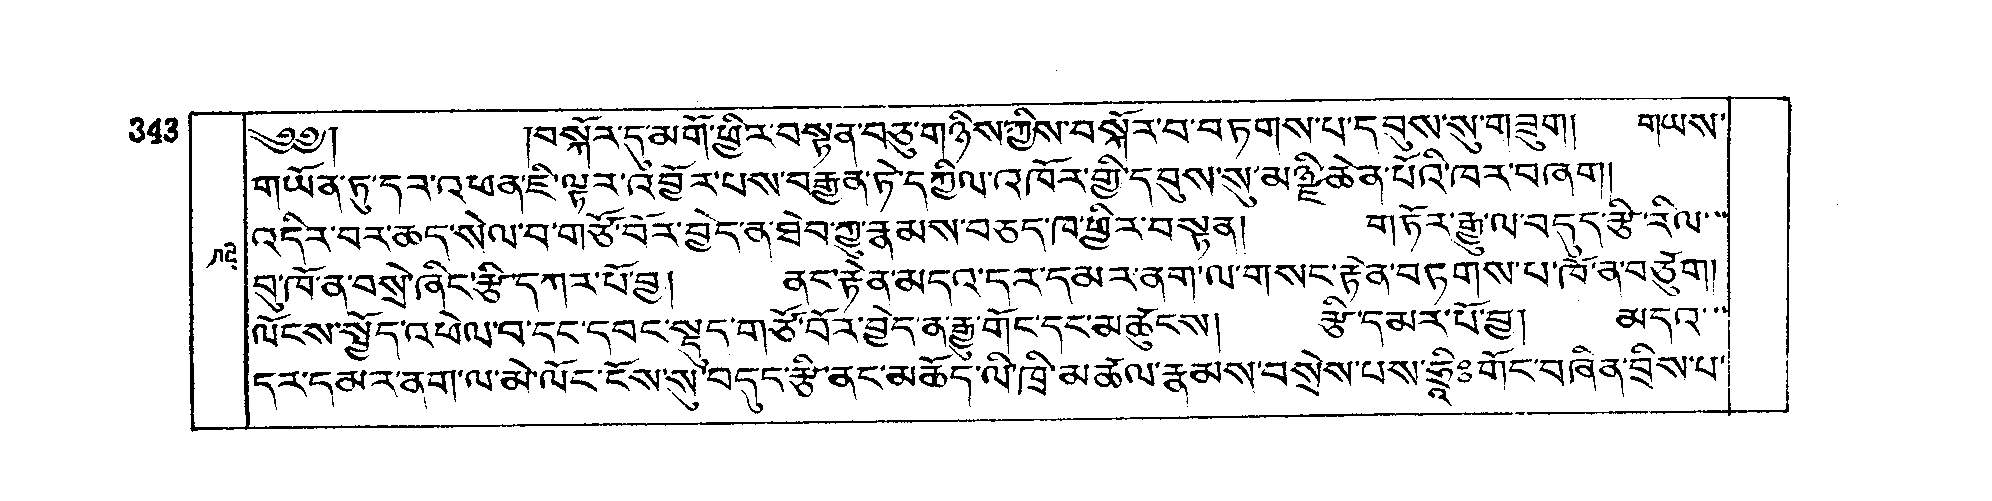 343
༄༅། །བསྐོར་དུ་མགོ་ཕྱིར་བསྟན་བཅུ་གཉིས་ཀྱིས་བསྐོར་བ་བཏགས་པ་དབུས་སུ་གཟུག། གཡས་
གཡོན་ཏུ་དར་འཕན་ཇི་ལྟར་འབྱོར་པས་བརྒྱན་ཏེ་དཀྱིལ་འཁོར་གྱི་དབུས་སུ་མཎྜི་ཆེན་པོའི་ཁར་བཞག།
འདིར་བར་ཆད་སེལ་བ་གཙོ་བོར་བྱེད་ན་ཐེབ་ཀྱུ་རྣམས་བཅད་ཁ་ཕྱིར་བསྟན། གཏོར་རྒྱུ་ལ་བདུད་རྩི་རིལ་
བུ་ཁོ་ན་བསྲེ་ཞིང་རྩི་དཀར་པོ་བྱ། ནང་རྟེན་མདའ་དར་དམར་ནག་ལ་གསང་རྟེན་བཏགས་པ་ཁོ་ན་བཙུག།
ལོངས་སྤྱོད་འཕེལ་བ་དང་དབང་སྡུད་གཙོ་བོར་བྱེད་ན་རྒྱུ་གོང་དང་མཚུངས། རྩི་དམར་པོ་བྱ། མདའ་
དར་དམར་ནག་ལ་མེ་ལོང་ངོས་སུ་བདུད་རྩི་ནང་མཆོད་ལི་ཁྲི་མཚལ་རྣམས་བསྲེས་པས་ཧྲཱིཿ གོང་བཞིན་བྲིས་པ་